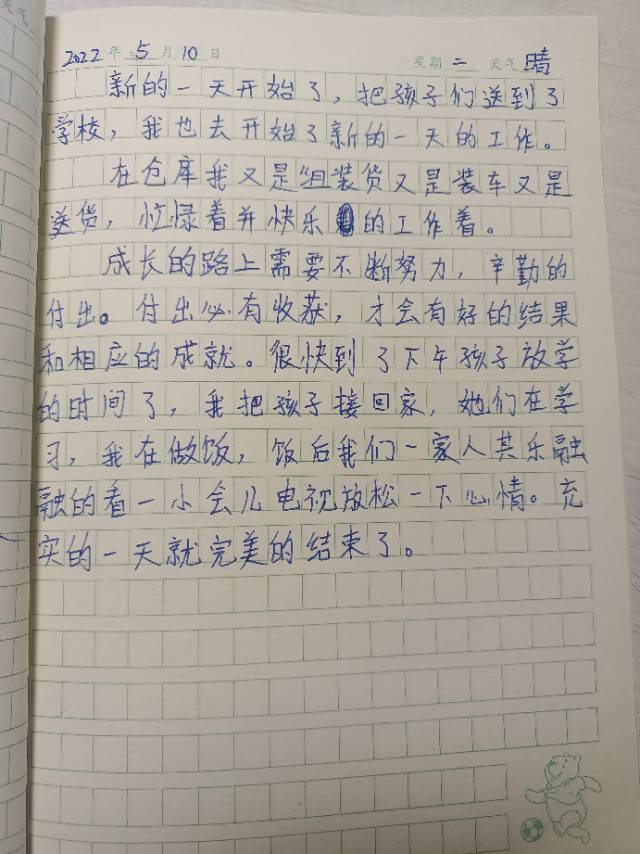 天气
2022年 5月 10日 星期 二 天气 晴
新的一天开始了，把孩子们送到了
学校，我也去开始了新的一天的工作。
在仓库我又是组装货又是装车又是
送货，忙碌着并快乐的工作着。
成长的路上需要不断努力，辛勤的
付出。付出必有收获，才会有好的结果
和相应的成就。很快到了下午孩子放学
的时间了，我把孩子接回家，她们在学
习，我在做饭，饭后我们一家人其乐融
融的看一小会儿电视放松一下心情。充
实的一天就完美的结束了。